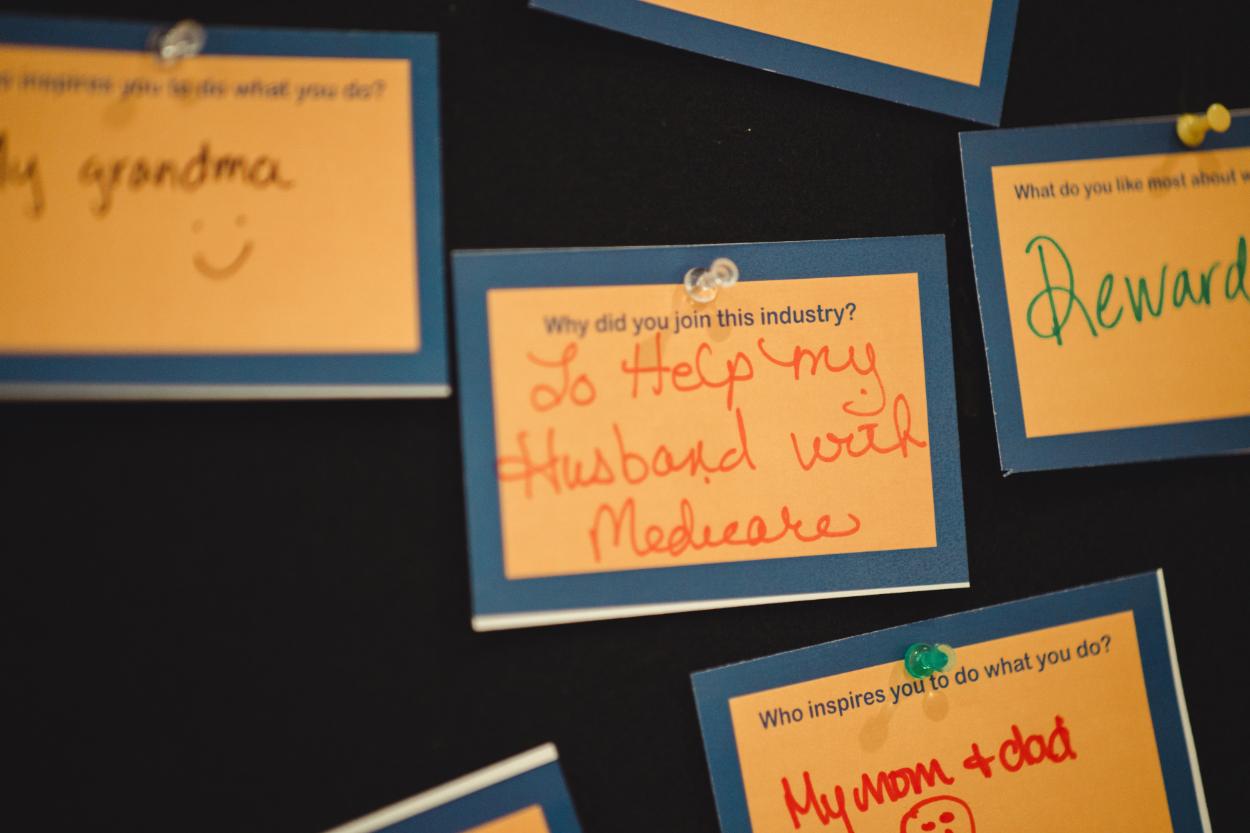 inspires you to do what you do?
My grandma
Why did you join this industry?
To Help my
Husband with
Medicare
What do you like most about
Reward
Who inspires you to do what you do?
My mom + dad